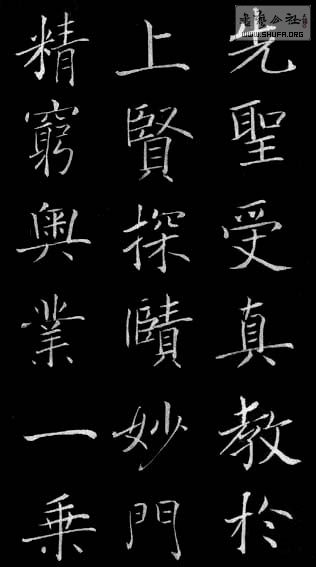 先聖受真教於
上賢探賾妙門
精窮奧業一乗
書藝公社
WWW.SHUFA.ORG